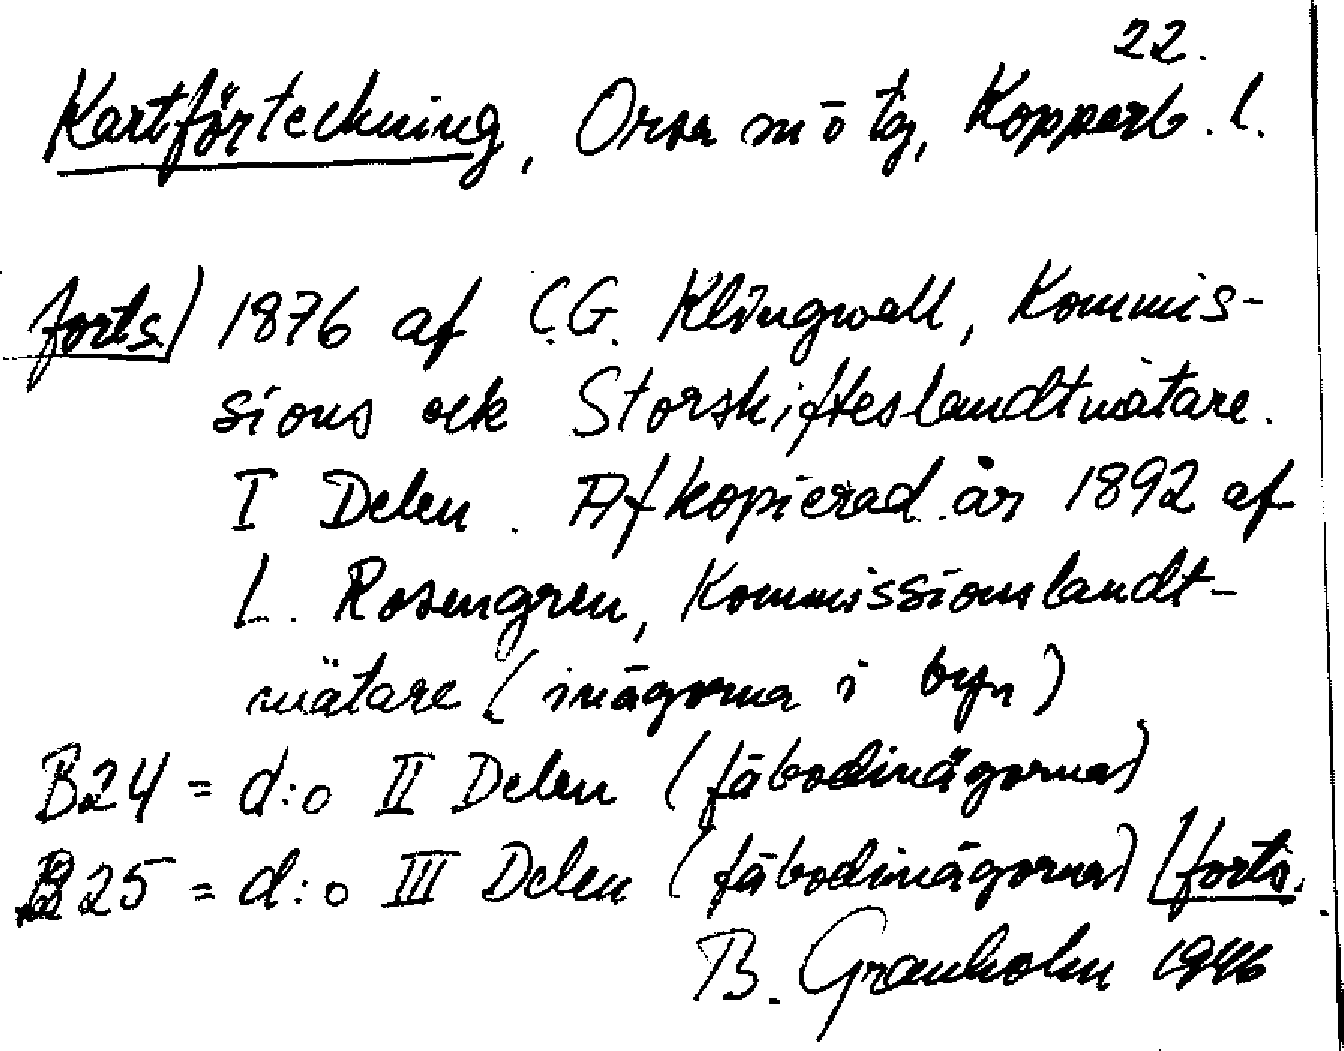 22.
Kartförteckning, Orsa m ö tg, Kopparb. l.
forts.) 1876 af C.G. Klingwall, Kommis-
sions ock Storskifteslandtmätare.
I Delen. Afkopierad år 1892 af
L. Rosengren, Kommissionslandt-
mätare (inägorna i byn)
B24 = d:o II Delen (fäbodinägorna)
B25 = d:o III Delen (fäbodinägorna) (forts.
B. Granholm 1946